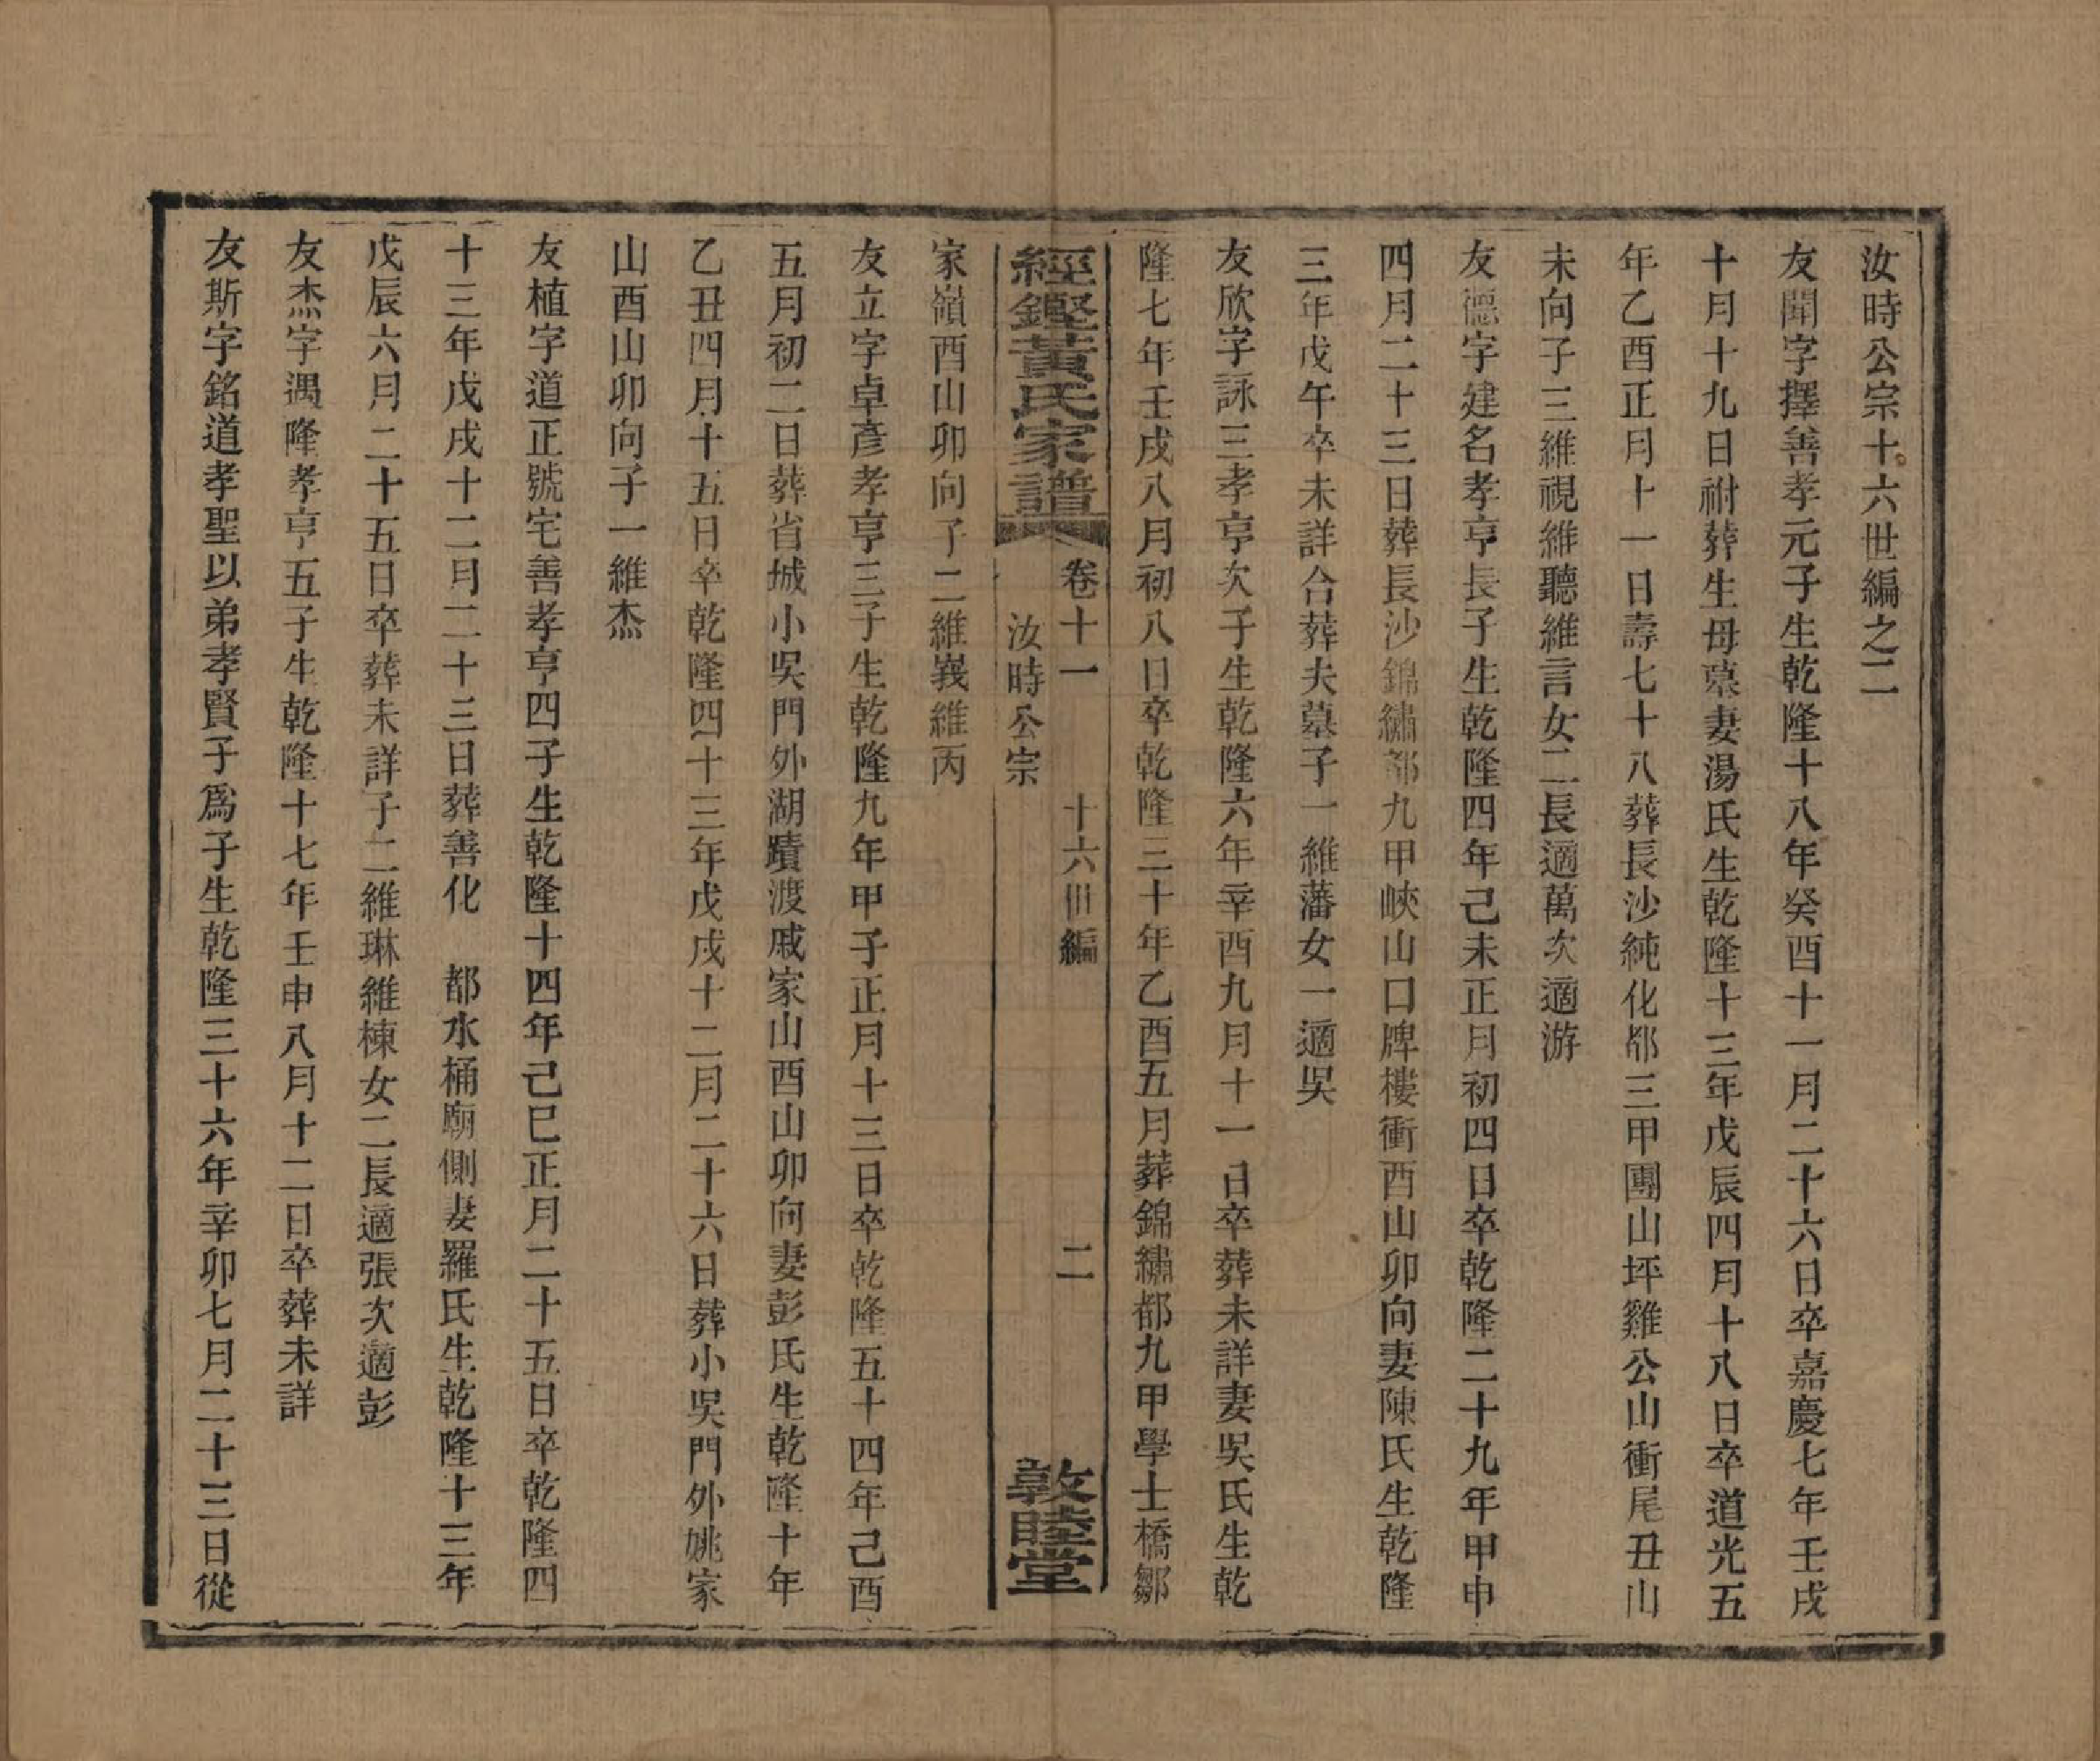 汝時公宗十六世編之二
友聞字擇善孝元子生乾隆十八年癸酉十一月二十六日卒嘉慶七年壬戌
十月十九日祔葬生母墓妻湯氏生乾隆十三年戊辰四月十八日卒道光五
年乙酉正月十一日壽七十八葬長沙純化都三甲團山坪雞公山衝尾丑山
未向子三維視維聽維言女二長適萬次適游
友德字建名孝亨長子生乾隆四年己未正月初四日卒乾隆二十九年甲申
四月二十三日葬長沙錦繡都九甲峽山口牌樓衝酉山卯向妻陳氏生乾隆
三年戊午卒未詳合葬夫墓子一維藩女一適吳
友欣字詠三孝亨次子生乾隆六年辛酉九月十一日卒葬未詳妻吳氏生乾
隆七年壬戌八月初八日卒乾隆三十年乙酉五月葬錦繡都九甲學士橋鄒
經鏗黃氏家譜 卷十一 汝時公宗 十六世編 二 敦睦堂
家嶺酉山卯向子二維峩維丙
友立字卓彥孝亨三子生乾隆九年甲子正月十三日卒乾隆五十四年己酉
五月初二日葬省城小吳門外湖蹟渡戚家山酉山卯向妻彭氏生乾隆十年
乙丑四月十五日卒乾隆四十三年戊戌十二月二十六日葬小吳門外姚家
山酉山卯向子一維杰
友植字道正號宅善孝亨四子生乾隆十四年己巳正月二十五日卒乾隆四
十三年戊戌十二月二十三日葬善化 都水桶廟側妻羅氏生乾隆十三年
戊辰六月二十五日卒葬未詳子二維琳維棟女二長適張次適彭
友杰字遇隆孝亨五子生乾隆十七年壬申八月十二日卒葬未詳
友斯字銘道孝聖以弟孝賢子爲子生乾隆三十六年辛卯七月二十三日從